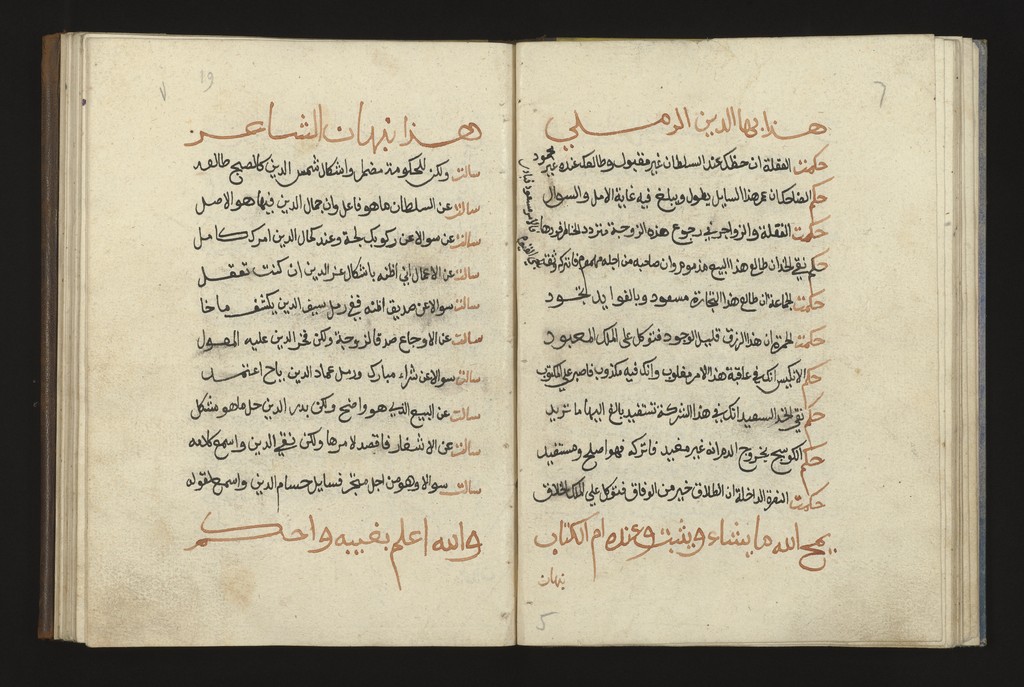 هذا بها الدين الرملي
حكمت العقلة ان حظك عند السلطان غير مقبول وطالعك عنده غير محمود
حكم الضاحك ان عمر هذا السايل يطول ويبلغ فيه غاية الامل والسوال
حكمت العقلة والزواجر في رجوع هذه الزوجة متردد الخاطر
حكم نقي الخد ان طالع هذا البيع مذموم وان صاحبه من اجله مهموم فاتركه
حكمت الجماعة ان طالع هذا التجارة مسعود وبالفوايد يجود
حكمت الحمرة ان هذا الرزق قليل الوجود فتوكل على الملك المعبود
حكم الانكيس انك في عاقبة هذا الامر مغلوب وانك فيه مكذوب فاصبر على المكتوب
حكم نقي الخد السعيد انك في هذا الشركة تستفيد بالغ اليها ما تريد
حكم الكوسج بخروج الدم انه غير مفيد فاتركه فهو اصلح ومستفيد
حكمت النصرة الداخلة ان الطلاق خير من الوفاق فتوكل على الملك الخلاق
يمح الله ما يشاء ويثبت وعنده ام الكتاب
نبهان
5
7
19
هذا نبهان الشاعر
سالت ولكن للحكومة مضمار واشكال شمس الدين كالصبح طالعه
سالت عن السلطان ما هو فاعل وان جمال الدين فيها هو الاصل
سالت عن سوالا عن ركوبك لجة وعند كمال الدين امرك كامل
سالت عن الاعمال اني اظنه باشكال عز الدين ان كنت تعقل
سالت سوالا عن صديق اظنه ففي رمل سيف الدين يكشف ما خا
سالت عن الاوجاع صدقا لزوجية ولكن فخر الدين عليه المعول
سالت سوالا عن شراء مبارك ورمل عماد الدين باح اعتمد
سالت عن البيع الذي هو واضح ولكن بدر الدين حل ما هو مشكل
سالت عن الاسفار فاقصد لامرها ولكن نقي الدين واسمع كلامه
سالت سوالا وهو من اجل متجر فسايل حسام الدين واسمع لقوله
والله اعلم بغيبه واحكم